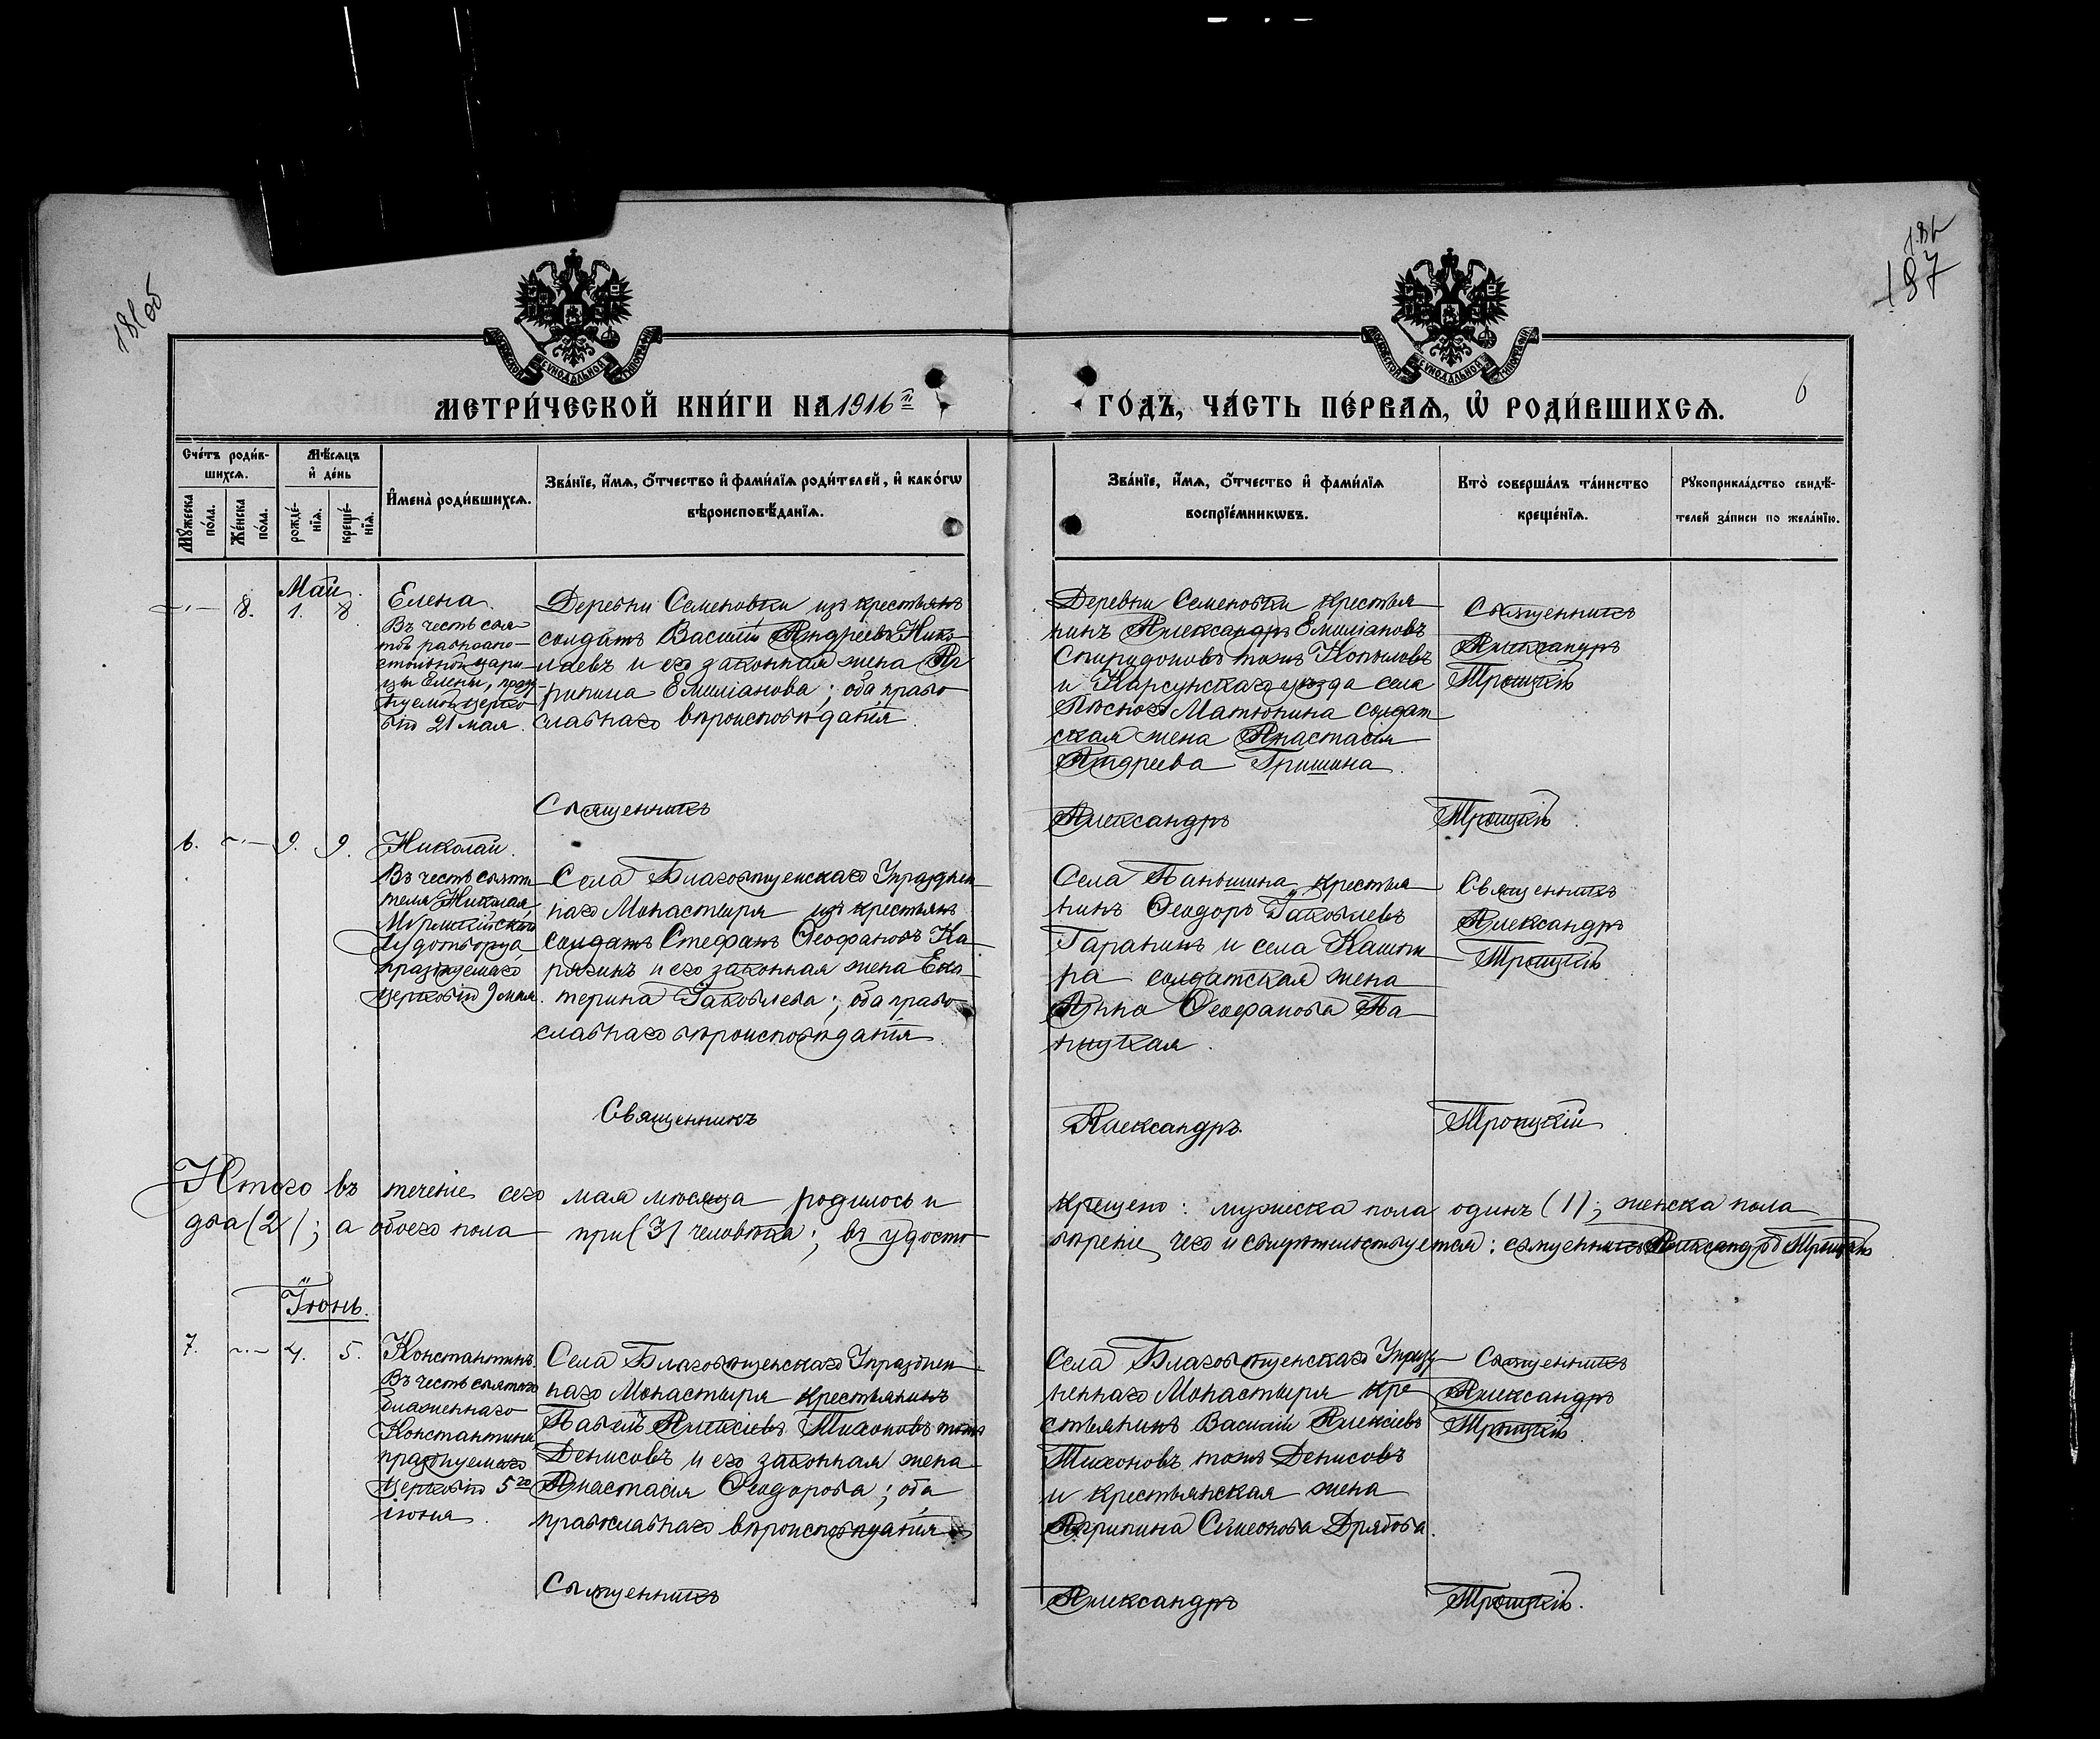 181об
186
187
МЕТРИ́ЧЕСКОЙ КНИ́ГИ НА 1916й
ГО́ДЪ, ЧА́СТЬ ПЕ́РВАѦ, Ѡ҆ РОДИ́ВШИХСѦ.
6
Сче́тъ роди́в-
шихсѧ.
Мѣ́сѧцъ
и҆ де́нь
Мꙋ́жеска
по́ла.
Же́нска
по́ла.
рожде́-
нїѧ.
креще́-
нїѧ.
И҆мена̀ роди́вшихсѧ.
Зва́нїе, и҆́мѧ, ѻ҆́тчество и҆ фами́лїѧ роди́телей, и҆ како́гѡ
вѣроисповѣ́данїѧ.
Зва́нїе, и҆́мѧ, ѻ҆́тчество и҆ фами́лїѧ
воспрїе́мникѡвъ.
Кто̀ соверша́лъ та́инство
креще́нїѧ.
Рꙋкоприкла́дство свидѣ́-
телей за́писи по жела́нїю.
Май.
8. 1. 8
Елена.
Въ честь свя-
той равноапо-
стольной цари-
цы Елены, празд-
нуемой церко-
вію 21 мая.
Деревни Семеновки изъ крестьянъ
солдатъ Василій Андреевъ Нико-
лаевъ и его законная жена Аг
рипина Емиліанова; оба право-
славнаго вѣроисповѣданія.
Деревни Семеновки крестья-
нинъ Александръ Емиліановъ
Спиридоновъ тожъ Копыловъ
и Карсунскаго уѣзда села
Лѣснаго Матюнина солдат-
ская жена Анастасія
Андреева Гришина.
Священникъ
Александръ
Троицкій
Священникъ
Александръ
Троицкій.
6. 9. 9.
Николай.
Въ честь святи-
теля Николая
Мѵрликійскаго
Чудотворца,
празднуемаго
церковію 9 мая.
Села Благовѣщенскаго Упразднен-
наго Монастыря изъ крестьянъ
солдатъ Стефанъ Ѳеофановъ Ка-
рягинъ и его законная жена Ека-
терина Іаковлева; оба право-
славнаго вѣроисповѣданія.
Села Паньшина крестья-
нинъ Ѳеодоръ Іаковлевъ
Гаранинъ и села Кашпи-
ра солдатская жена
Анна Ѳеофанова Па-
ницкая.
Священникъ
Александръ
Троицкій.
Священникъ
Александръ.
Троицкій.
Итого въ теченіе сего мая мѣсяца родилось и
крещено: мужеска пола одинъ (1); женска пола
два (2); а обоего пола три (3) человѣка; въ удосто-
вѣреніе чего и свидѣтельствуется: священникъ Александръ Троицкій
Іюнь.
7. 4. 5.
Константинъ.
Въ честь святаго
блаженнаго
Константина
празднуемаго
церковію 5го
іюня.
Села Благовѣщенскаго Упразднен-
наго Монастыря крестьянинъ
Павелъ Алексіевъ Тихоновъ тожъ
Денисовъ и его законная жена
Анастасія Ѳеодорова; оба
православнаго вѣроисповѣданія.
Села Благовѣщенскаго Упразд-
неннаго Монастыря кре-
стьянинъ Василій Алексіевъ
Тихоновъ тожъ Денисовъ
и крестьянская жена
Агрипина Симеонова Дрябова.
Священникъ
Александръ
Троицкій.
Священникъ
Александръ
Троицкій.